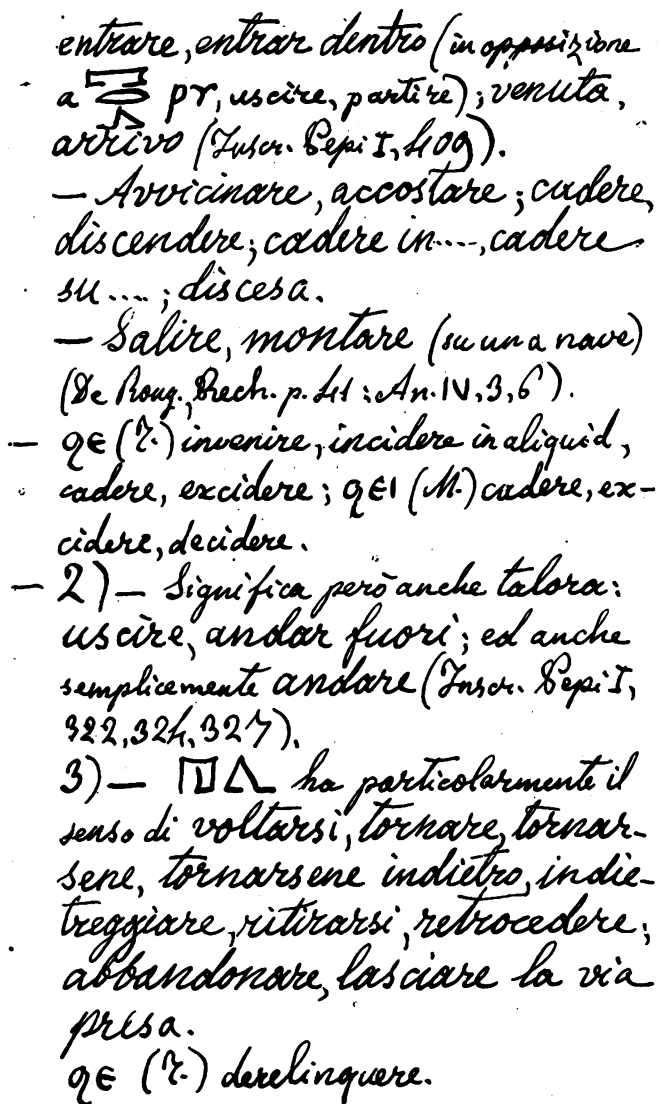 entrare, entrar dentro (in opposizione
a 𓉐𓂋𓂻 pr, uscire, partire); venuta,
arrivo (Inscr. Pepi I, 409).
— Avvicinare, accostare; cadere,
discendere; cadere in...., cadere
su ....; discesa.
— Salire, montare (su una nave)
(De Roug. Rech. p. 111: An. IV, 3, 6).
— ϩⲉ (T.) invenire, incidere in aliquid,
cadere, excidere; ϩⲉⲓ (M.) cadere, ex-
cidere, decidere.
— 2) — Significa però anche talora:
uscire, andar fuori; ed anche
semplicemente andare (Inscr. Pepi I,
322, 324, 327).
3) — 𓉔𓂻 ha particolarmente il
senso di voltarsi, tornare, tornar-
sene, tornarsene indietro, indie-
treggiare, ritirarsi, retrocedere;
abbandonare, lasciare la via
presa.
ϩⲉ (T.) derelinquere.